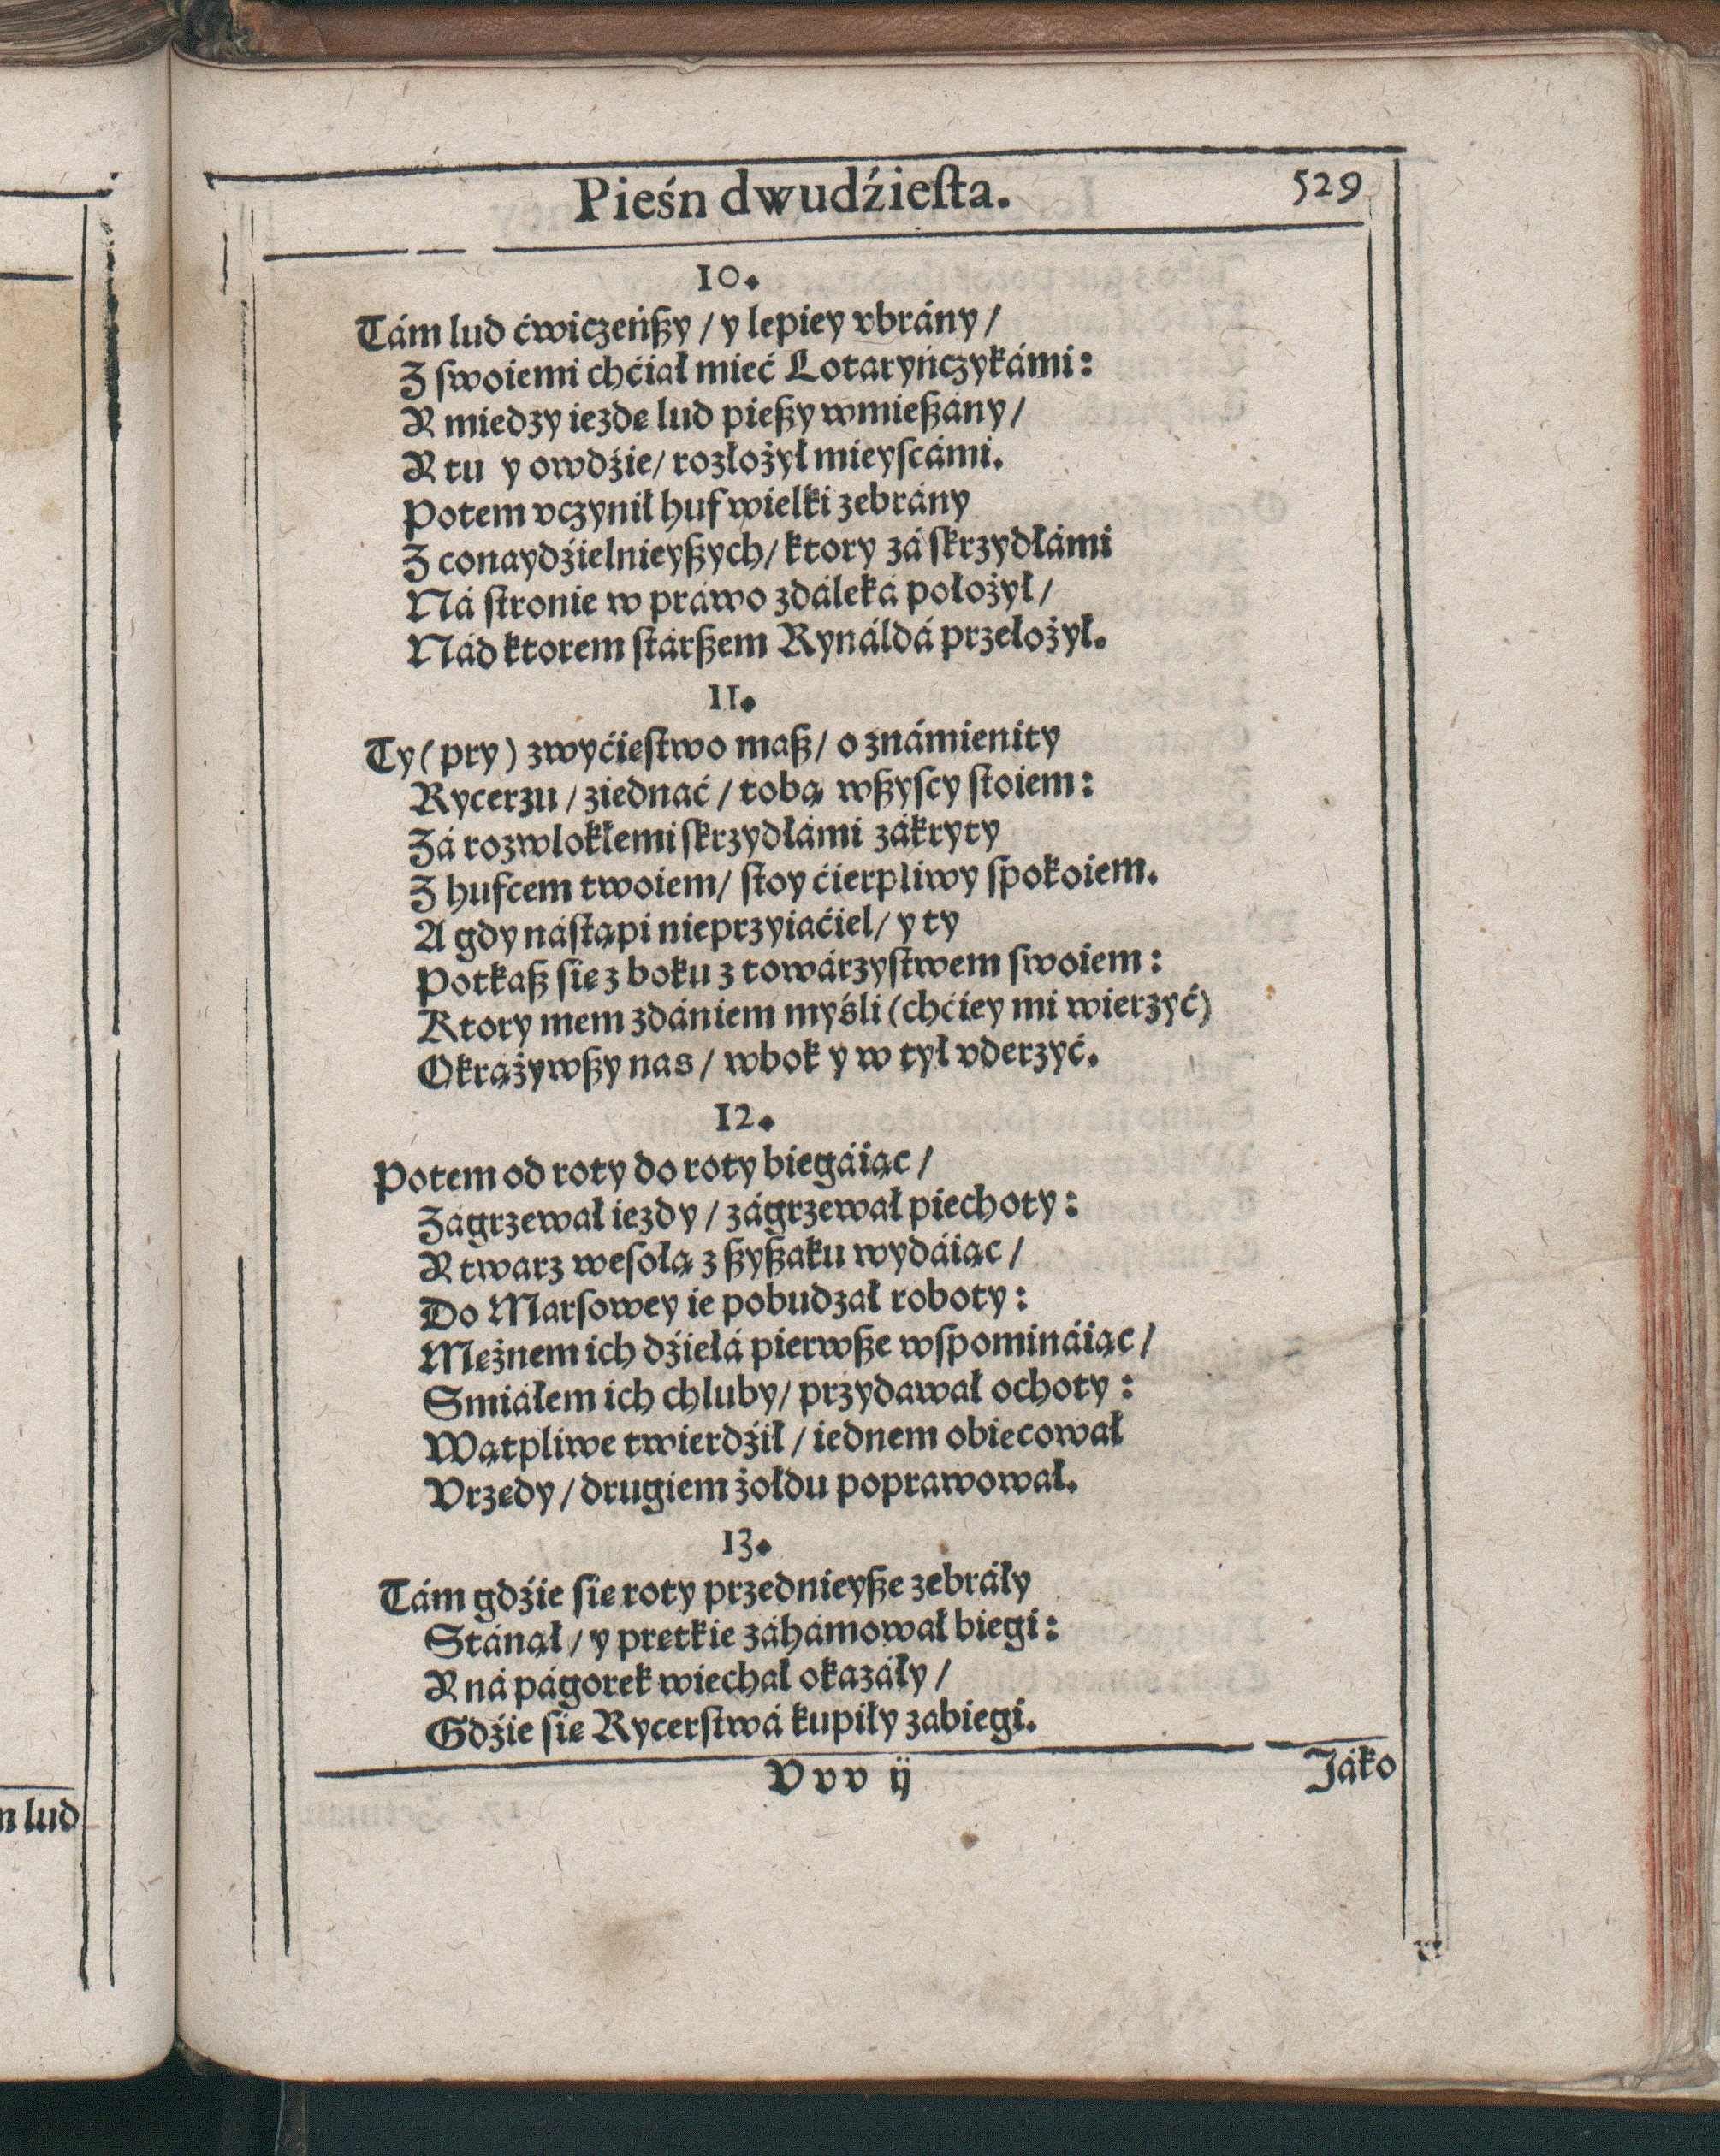 Pieśn dwudźieſta.
529
10.
Tám lud ćwiczeńßy / y lepiey vbrány /
Z ſwoiemi chćiał mieć Lotaryńczykámi:
A miedzy iezdę lud pießy wmießány /
A tu y owdźie / rozłożył mieyſcámi.
Potem vczynił huf wielki zebrány
Z conaydźielnieyßych / ktory zá ſkrzydłámi
Ná ſtronie w práwo zdáleká położył /
Nád ktorem ſtárßem Rynáldá przełożył.
11.
Ty (pry) zwyćięſtwo maß / o známienity
Rycerzu / ziednać / tobą wßyſcy ſtoiem:
Zá rozwlokłemi ſkrzydłámi zákryty
Z hufcem twoiem / ſtoy ćierpliwy ſpokoiem.
A gdy náſtąpi nieprzyiaćiel / y ty
Potkaß ſię z boku z towárzyſtwem ſwoiem:
Ktory mem zdániem myśli (chćiey mi wierzyć)
Okrążywßy nas / wbok y w tył vderzyć.
12.
Potem od roty do roty biegáiąc /
Zágrzewał iezdy / zágrzewał piechoty:
A twarz weſołą z ßyßaku wydáiąc /
Do Marſowey ie pobudzał roboty:
Mężnem ich dźiełá pierwße wſpomináiąc /
Smiáłem ich chluby / przydawał ochoty:
Wątpliwe twierdźił / iednem obiecował
Vrzędy / drugiem żołdu poprawował.
13.
Tám gdźie ſię roty przednieyße zebráły
Stánął / y prętkie záhámował biegi:
A ná págorek wiechał okazáły /
Gdźie ſię Rycerſtwá kupiły zabiegi.
V v v ij
Jáko
n lud